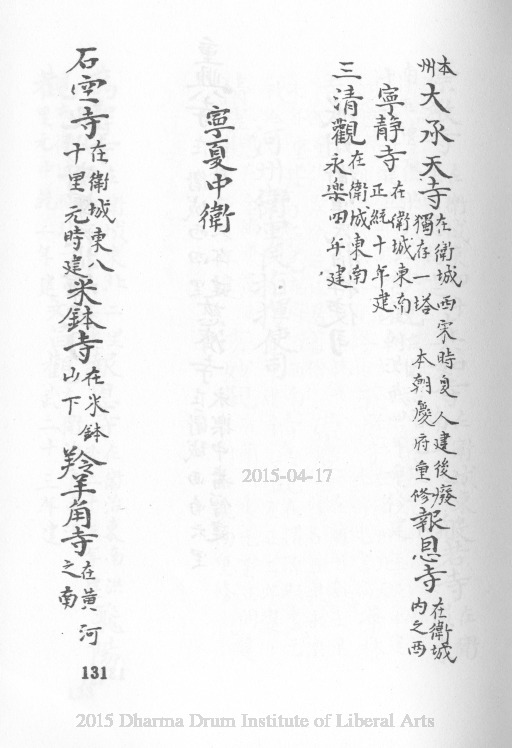 本州大承天寺在衛城西宋時夏人建後廢獨存一塔本朝慶府重修報恩寺在衛城內之西
寧靜寺在衛城東南正統十年建
三清觀在衛城東南永樂四年建
寧夏中衛
石空寺在衛城東八十里元時建米鉢寺在米鉢山下羚羊角寺在黃河之南
131
2015-04-17
2015 Dharma Drum Institute of Liberal Arts